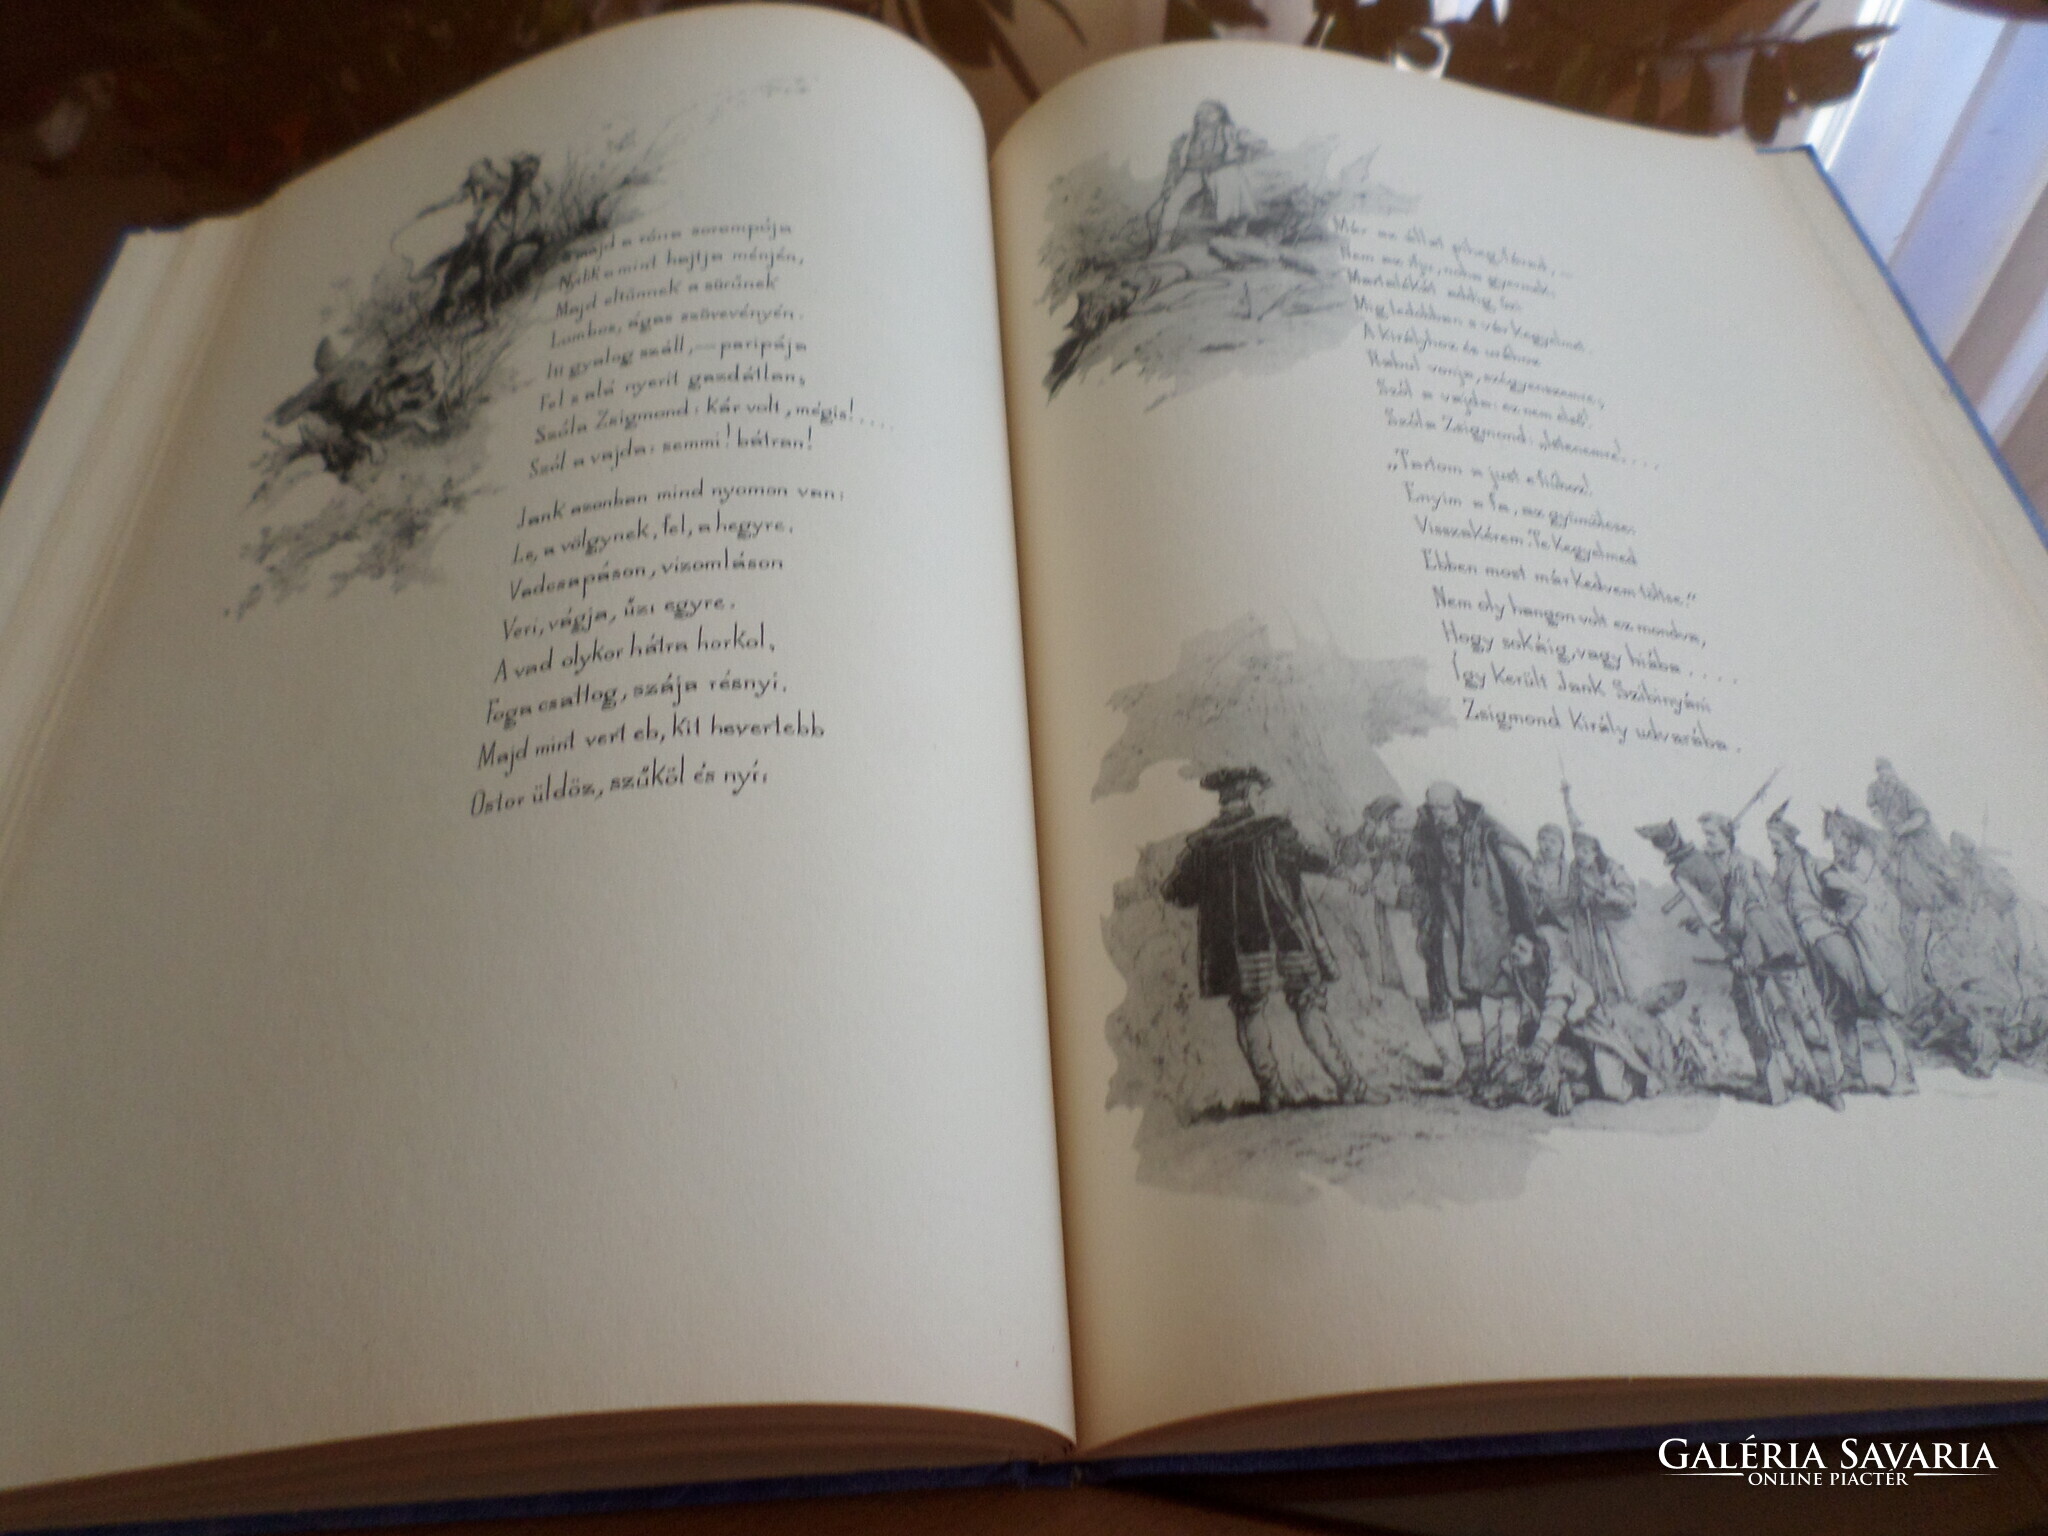 majd a róna sorompója
Nyílik a mint hajtja ménjén,
Majd eltünnek a sürűnek
Lombos, ágas szövevényén.
Itt gyalog száll, — paripája
Fel s alá nyerít gazdátlan;
Szóla Zsigmond: kár volt, mégis! ....
Szól a vajda: semmi! bátran!
Jank azonban mind nyomon van;
Le, a völgynek, fel, a hegyre,
Vadcsapáson, vízomláson
Veri, vágja, űzi egyre.
A vad olykor hátra horkol,
Foga csattog, szája résnyi,
Majd mint vert eb, kit hevertebb
Ostor üldöz, szűköl és nyí;
Már az állat piheg, fárad, —
Nem az ifju, noha gyermek;
Martalékát addig űzi
Míg ledobban s vár kegyelmet.
A királyhoz és urához
Rabul vonja, szégyenszemre;
Szól a vajda: ez nem első!
Szóla Zsigmond: „Istenemre! ....
„Tartom a just e fiúhoz!
Enyim a fa, az gyümölcse;
Visszakérem: Te kegyelmed
Ebben most már kedvem töltse."
Nem oly hangon volt ez mondva,
Hogy sokáig, vagy hiába ....
Így került Jank Szibinyáni
Zsigmond király udvarába.
GALÉRIA SAVARIA
ONLINE PIACTÉR